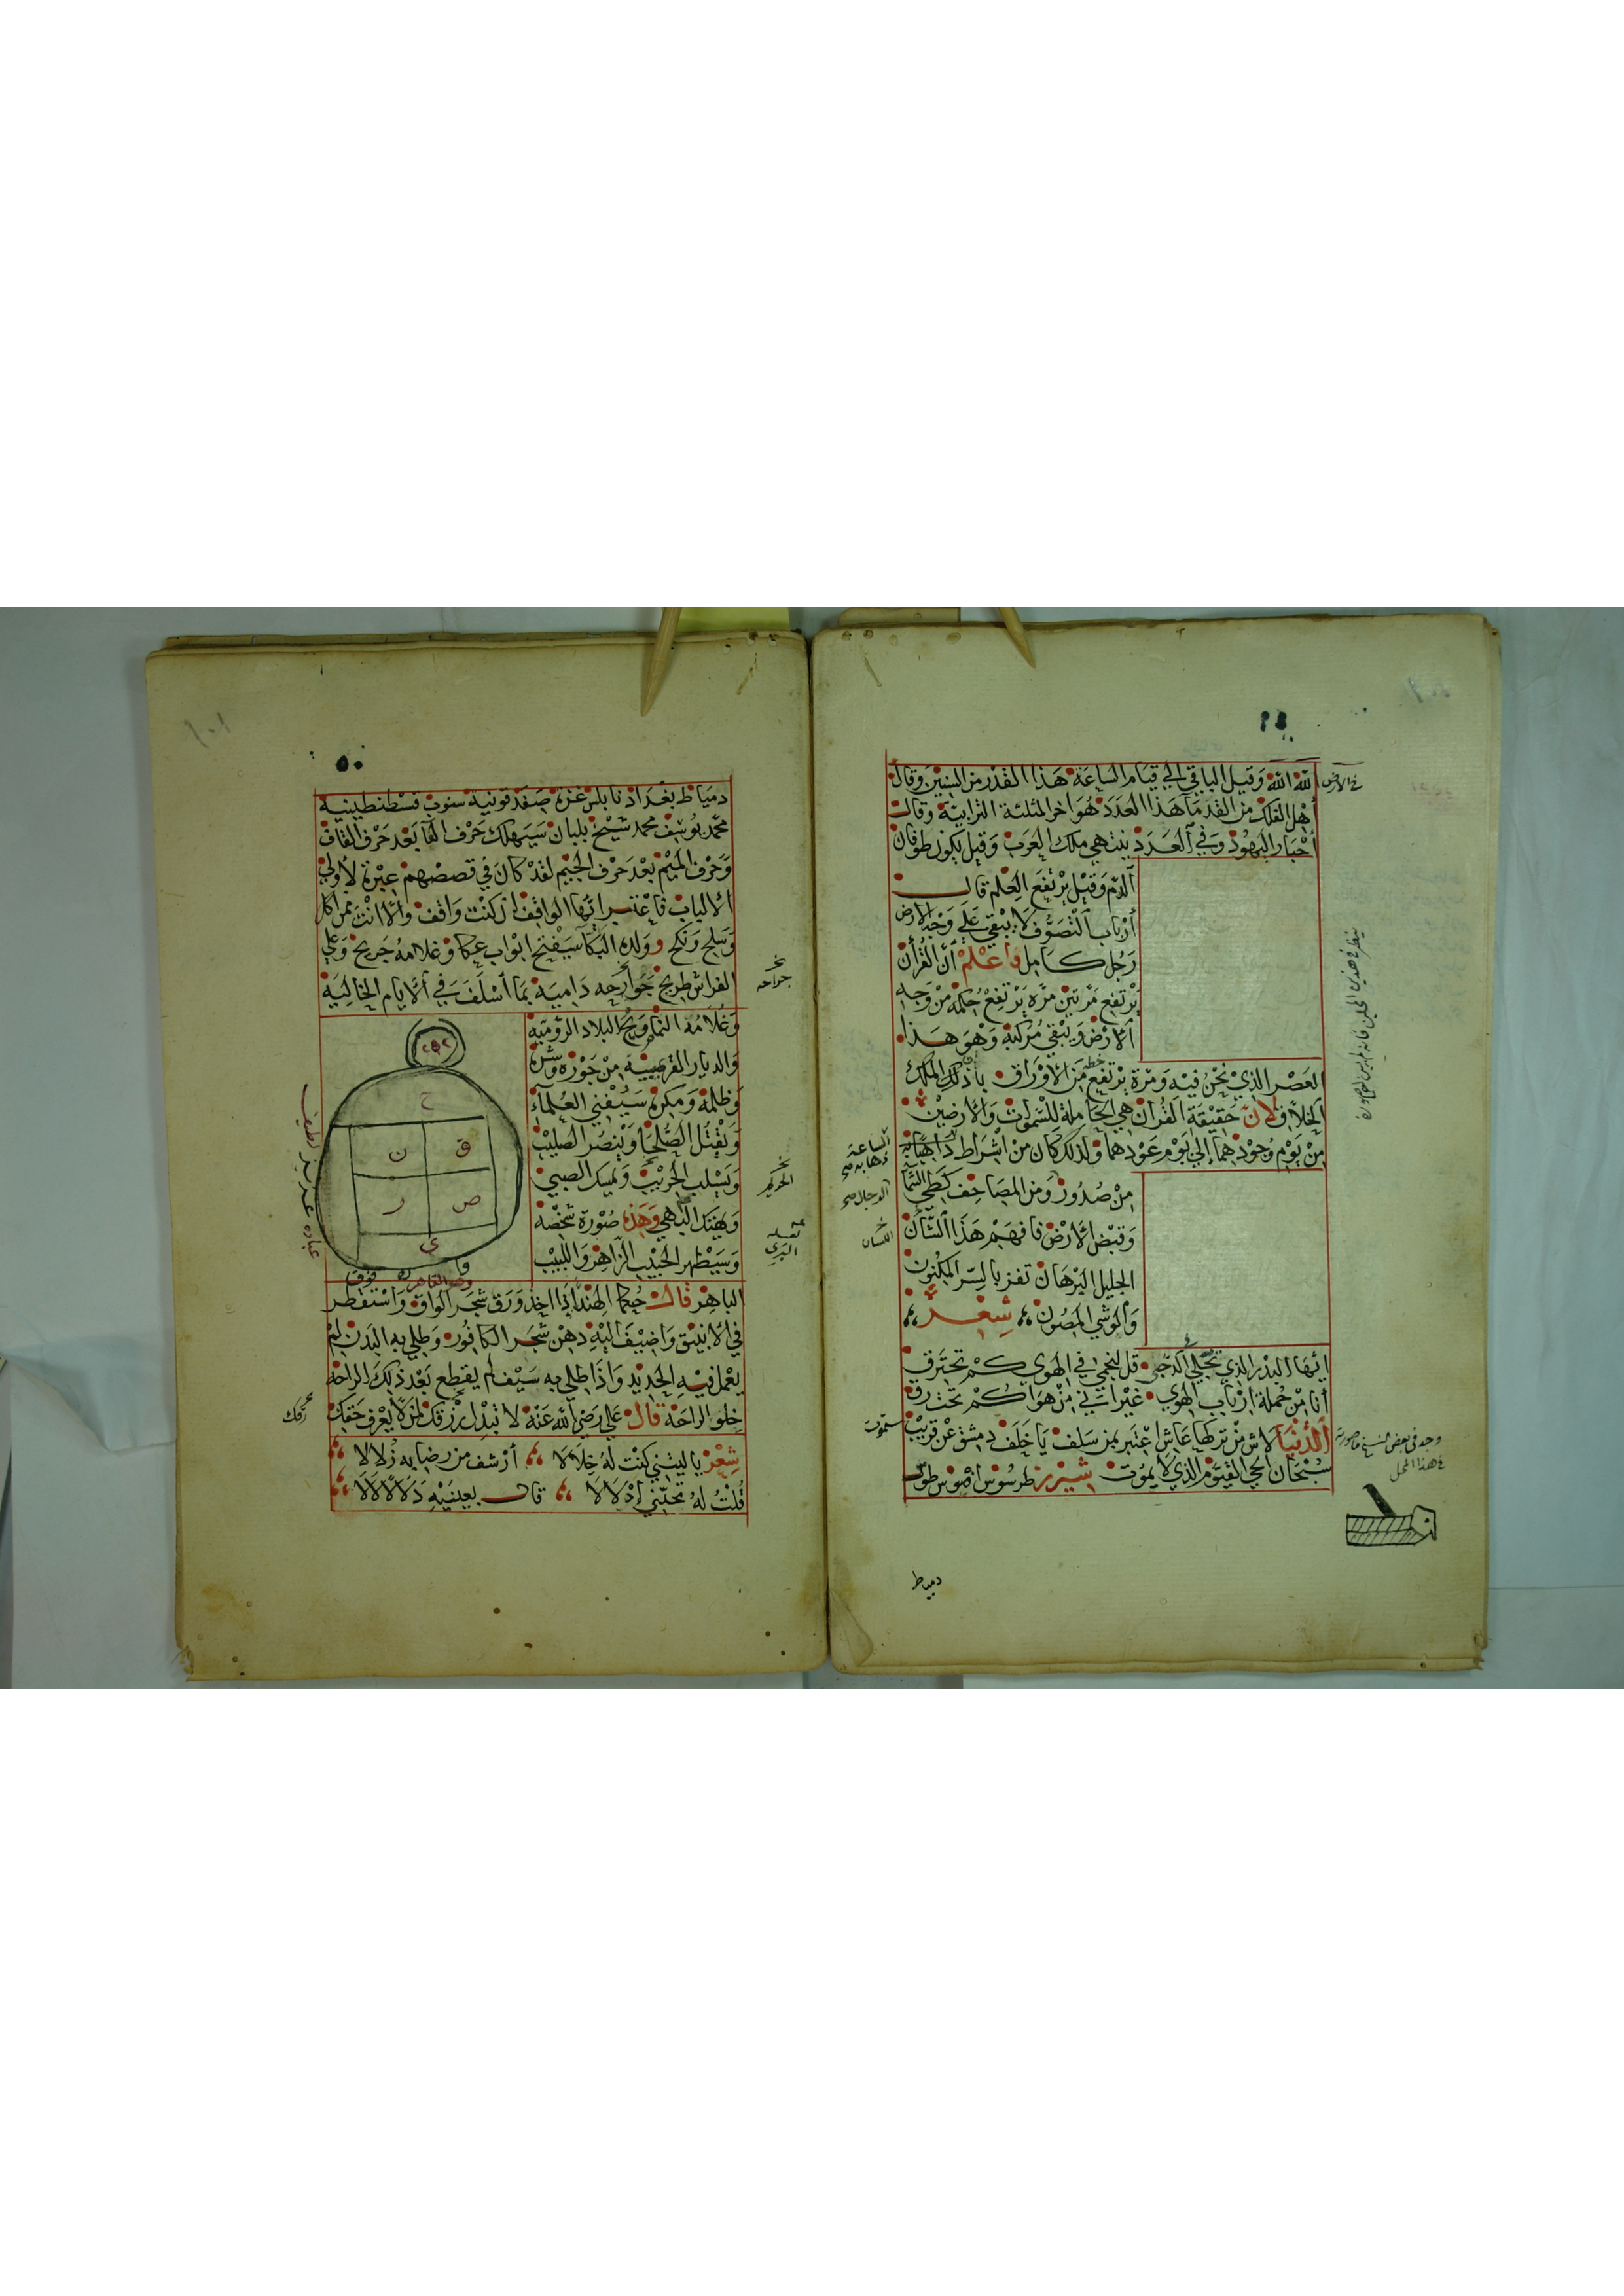 لله الله وقيل الباقي الي قيام الساعة هذا القدر من السنين وقال
في الارض
أهل الفلك من القدماء هذا العدد هو اخر المثلثة الترابية وقالت
أحبار اليهود وفي العدد ينتهي ملك العرب وقيل يكون طوفان
الدم وقيل يرتفع العلم قالت
أرباب التصوف لا يبقي علي وجه الارض
رجل كامل واعلم أن القرأن
يرتفع مرتين مرة يرتفع حكمه من وجه
الارض ويبقي مركبه وهو هذا
العصر الذي نحن فيه ومرة يرتفع خطه من الاوراق باذن الملك
الخلاق لان حقيقة القران هي الحاملة للسموات والارضين
من يوم وجودهما إلي يوم عودهما ولذلك كان من اشراط
الساعة
ذهابه صح
من صدور ومن المصاحف كطي السما
الرجال صح
وقبض الارض فافهم هذا الشان
خ
اللسان
الجليل البرهان تفز بالسر المكنون
والوشي المصون شعر
ايها البدر الذي تجلي الدجي قل لنجمي في الهوي كم تحترق
أنا من جملة ارباب الهوي غير اني من هواكم تحت رق
الدنيا لاش من تركها عاش اعتبر بمن سلف يا خلف دمشق عن قريب
ستموت
سبحان الحي القيوم الذي لا يموت شيزر طرسوس
وجد في بعض النسخ صورته
في هذا المحل
دمياط
٥٠
دمياط بغداد نابلس غزة صفد قونية سنوب قسطنطينية
محمد يوسف محمد شيخ بلبان سيهلك حرف الفا بعد حرف القاف
وحرف الميم بعد حرف الجيم لقد كان في قصصهم عبرة لأولي
الالباب فاعتبر ايها الواقف ان كنت واقف والا انت ممن اكل
وسلح ونكح وولده البكا سيفتح ابواب عكا وغلامه جريح وعلي
الفراش طريح جوارحه دامية بما أسلف في الايام الخالية
خ
جراحه
وغلامه النما ويح البلاد الرومية
والديار القرعبية من جوره وشره
وظلمه ومكره سيفني العلماء
ويقتل الصلحا وينصر الصليب
ويسلب الحريب ويمسك الصبي
خ
الحريم
ويفتك البهي وهذه صورة شخصه
وسيظهر الحبيب الزاهر واللبيب
ح
ق
ن
ص
ر
ي
الباهر قالت حكما الهند اذا اخذ ورق شجر الواق واستقطر
في الانبيق واضيف اليه دهن شجر الكافور وطلي به البدن لم
يعمل فيه الحديد واذا طلي به سيف لم يقطع بعد ذلك الراحة
خلو الراحة قال علي رضي الله عنه لا تبذل رزقك لمن لا يعرف حقك
شعر يا ليتني كنت له خلالا أرشف من رضابه زلالا
قلت له تحبني اذ لالا قالت بعينيه دلالا لالا